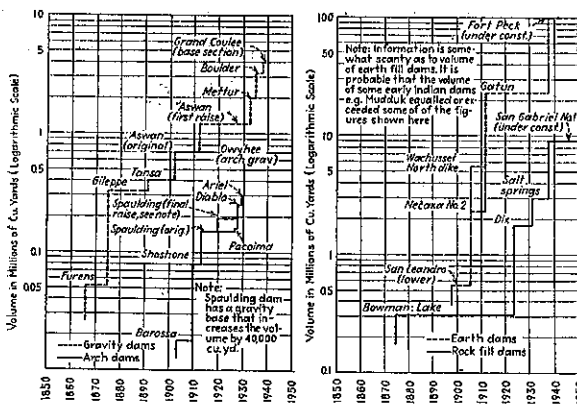 Volume in Millions of Cu. Yards (Logarithmic Scale)
10
5
1
0.5
0.1
0.05
Grand Coulee
(base section)
Boulder
Mettur
Aswan
(first raise)
Aswan
(original)
Owyhee
(arch grav)
Tansa
Gileppe
Ariel
Diablo
Spaulding (final
raise, see note)
Spaulding (orig)
Pacoima
Shoshone
Furens
Note:
Spaulding dam
has a gravity
base that in-
creases the vol-
ume by 40,000
cu. yd.
Barossa
Gravity dams
Arch dams
1850
1860
1870
1880
1890
1900
1910
1920
1930
1940
1950
Volume in Millions of Cu. Yards (Logarithmic Scale)
100
50
10
5
1.0
0.5
0.1
Fort Peck
(under const.)
Note: Information is some-
what scanty as to volume
of earth fill dams. It is
probable that the volume
of some early Indian dams
e.g. Mudduk equalled or ex-
ceeded some of of the fig-
ures shown here
Gatun
San Gabriel No.1
(under const.)
Wachussef
North dike
Salt
springs
Necaxa No.2
Dix
San Leandro
(lower)
Bowman Lake
Earth dams
Rock fill dams
1850
1860
1870
1880
1890
1900
1910
1920
1930
1940
1950